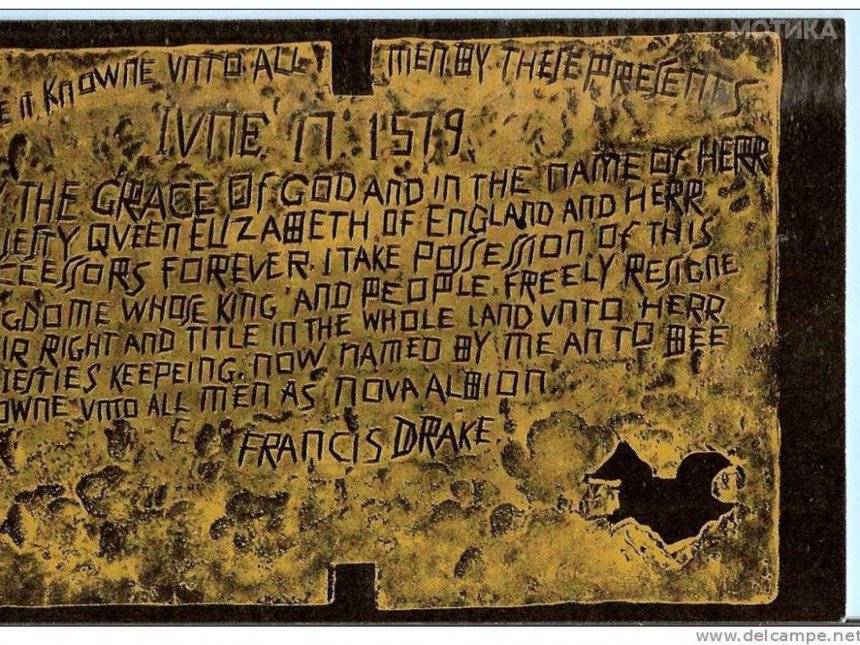 МОТИКА
E IT KNOWNE VNTO ALL MEN BY THESE PRESENTS
IVNE 17 1579
Y THE GRACE OF GOD AND IN THE NAME OF HERR
IESTY QVEEN ELIZABETH OF ENGLAND AND HERR
CCESSORS FOREVER. I TAKE POSSESSION OF THIS
GDOME WHOSE KING AND PEOPLE FREELY RESIGNE
IR RIGHT AND TITLE IN THE WHOLE LAND VNTO HERR
IESTIES KEEPEING. NOW NAMED BY ME AN TO BEE
OWNE VNTO ALL MEN AS NOVA ALBION.
FRANCIS DRAKE.
www.delcampe.net